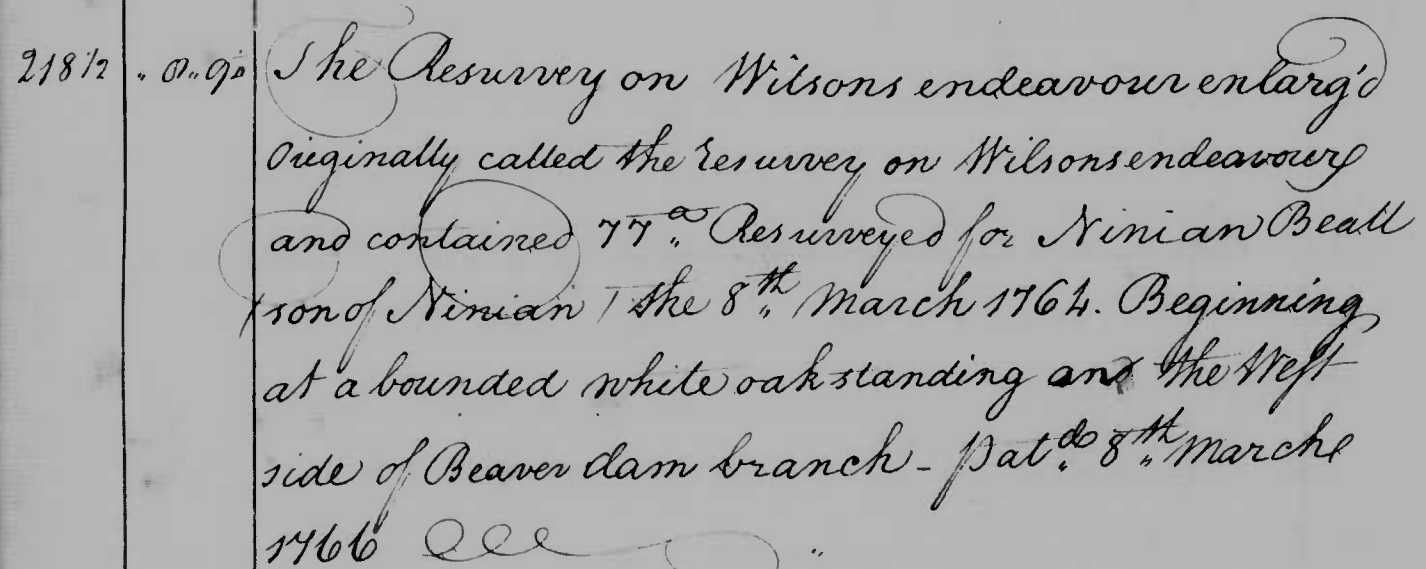 218 1/2 " 8 " 9½ The Resurvey on Wilsons endeavour enlarg'd
Originally called the resurvey on Wilsons endeavour
and contained 77.ª Resurveyed for Ninian Beall
/son of Ninian/ the 8.th March 1764. Beginning
at a bounded white oak standing and the West
side of Beaver dam branch - pat.d 8.th March
1766